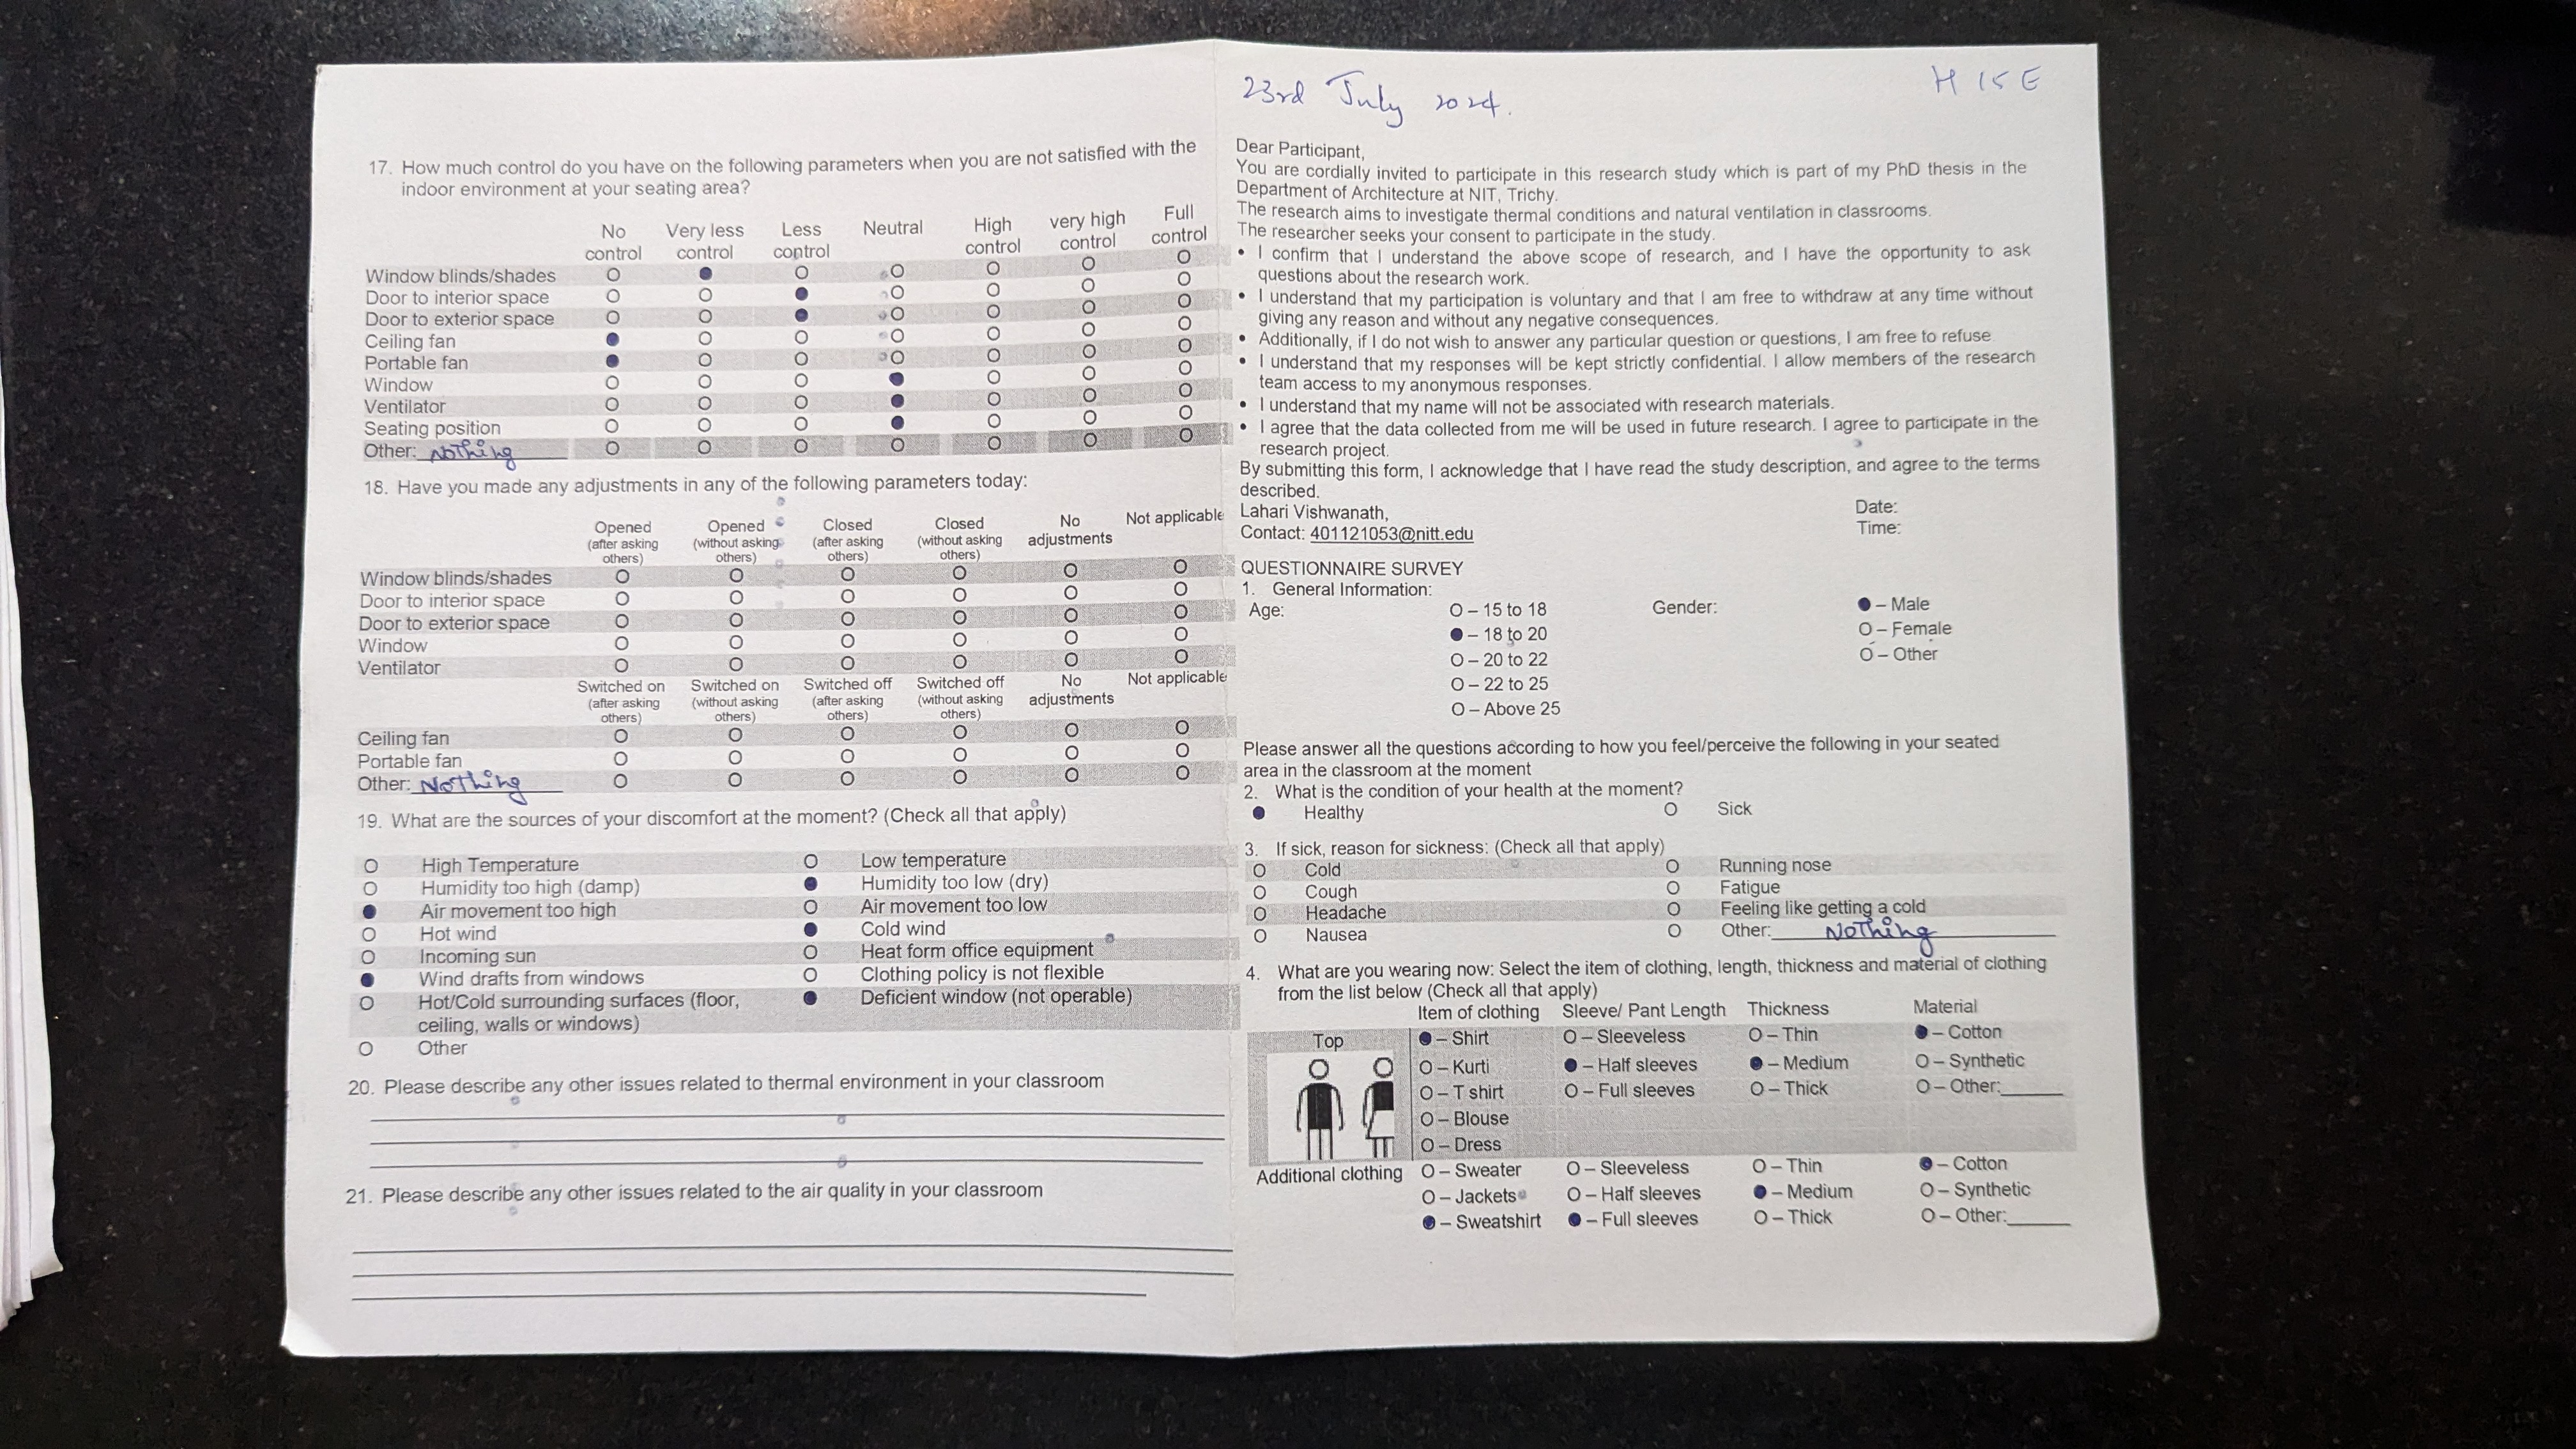 17. How much control do you have on the following parameters when you are not satisfied with the
indoor environment at your seating area?
No control Very less control Less control Neutral High control very high control Full control
Window blinds/shades O ● O O O O O
Door to interior space O O ● O O O O
Door to exterior space O O ● O O O O
Ceiling fan ● O O O O O O
Portable fan ● O O O O O O
Window O O O ● O O O
Ventilator O O O ● O O O
Seating position O O O ● O O O
Other: Nothing O O O O O O O
18. Have you made any adjustments in any of the following parameters today:
Opened (after asking others) Opened (without asking others) Closed (after asking others) Closed (without asking others) No adjustments Not applicable
Window blinds/shades O O O O O O
Door to interior space O O O O O O
Door to exterior space O O O O O O
Window O O O O O O
Ventilator O O O O O O
Switched on (after asking others) Switched on (without asking others) Switched off (after asking others) Switched off (without asking others) No adjustments Not applicable
Ceiling fan O O O O O O
Portable fan O O O O O O
Other: Nothing O O O O O O
19. What are the sources of your discomfort at the moment? (Check all that apply)
O High Temperature O Low temperature
O Humidity too high (damp) ● Humidity too low (dry)
● Air movement too high O Air movement too low
O Hot wind ● Cold wind
O Incoming sun O Heat form office equipment
● Wind drafts from windows O Clothing policy is not flexible
O Hot/Cold surrounding surfaces (floor, ● Deficient window (not operable)
ceiling, walls or windows)
O Other
20. Please describe any other issues related to thermal environment in your classroom
21. Please describe any other issues related to the air quality in your classroom
23rd July 2024. H 15 E
Dear Participant,
You are cordially invited to participate in this research study which is part of my PhD thesis in the
Department of Architecture at NIT, Trichy.
The research aims to investigate thermal conditions and natural ventilation in classrooms.
The researcher seeks your consent to participate in the study.
• I confirm that I understand the above scope of research, and I have the opportunity to ask
questions about the research work.
• I understand that my participation is voluntary and that I am free to withdraw at any time without
giving any reason and without any negative consequences.
• Additionally, if I do not wish to answer any particular question or questions, I am free to refuse
• I understand that my responses will be kept strictly confidential. I allow members of the research
team access to my anonymous responses.
• I understand that my name will not be associated with research materials.
• I agree that the data collected from me will be used in future research. I agree to participate in the
research project.
By submitting this form, I acknowledge that I have read the study description, and agree to the terms
described.
Lahari Vishwanath, Date:
Contact: 401121053@nitt.edu Time:
QUESTIONNAIRE SURVEY
1. General Information:
Age: O – 15 to 18 Gender: ● – Male
● – 18 to 20 O – Female
O – 20 to 22 O – Other
O – 22 to 25
O – Above 25
Please answer all the questions according to how you feel/perceive the following in your seated
area in the classroom at the moment
2. What is the condition of your health at the moment?
● Healthy O Sick
3. If sick, reason for sickness: (Check all that apply)
O Cold O Running nose
O Cough O Fatigue
O Headache O Feeling like getting a cold
O Nausea O Other: Nothing
4. What are you wearing now: Select the item of clothing, length, thickness and material of clothing
from the list below (Check all that apply)
Item of clothing Sleeve/ Pant Length Thickness Material
Top ● – Shirt O – Sleeveless O – Thin ● – Cotton
O – Kurti ● – Half sleeves ● – Medium O – Synthetic
O – T shirt O – Full sleeves O – Thick O – Other:______
O – Blouse
O – Dress
Additional clothing O – Sweater O – Sleeveless O – Thin ● – Cotton
O – Jackets O – Half sleeves ● – Medium O – Synthetic
● – Sweatshirt ● – Full sleeves O – Thick O – Other:______